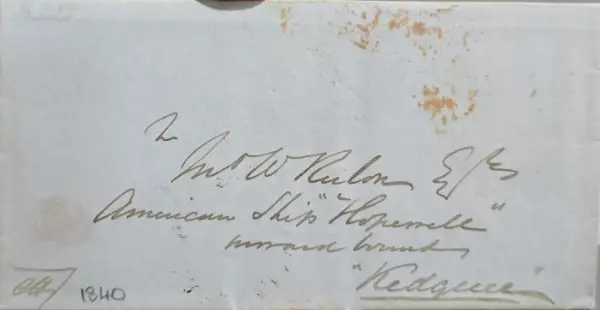 To
Mr W Rulon Esqre
American Ship "Hopewell"
inward bound
"Kedgeree"
1840